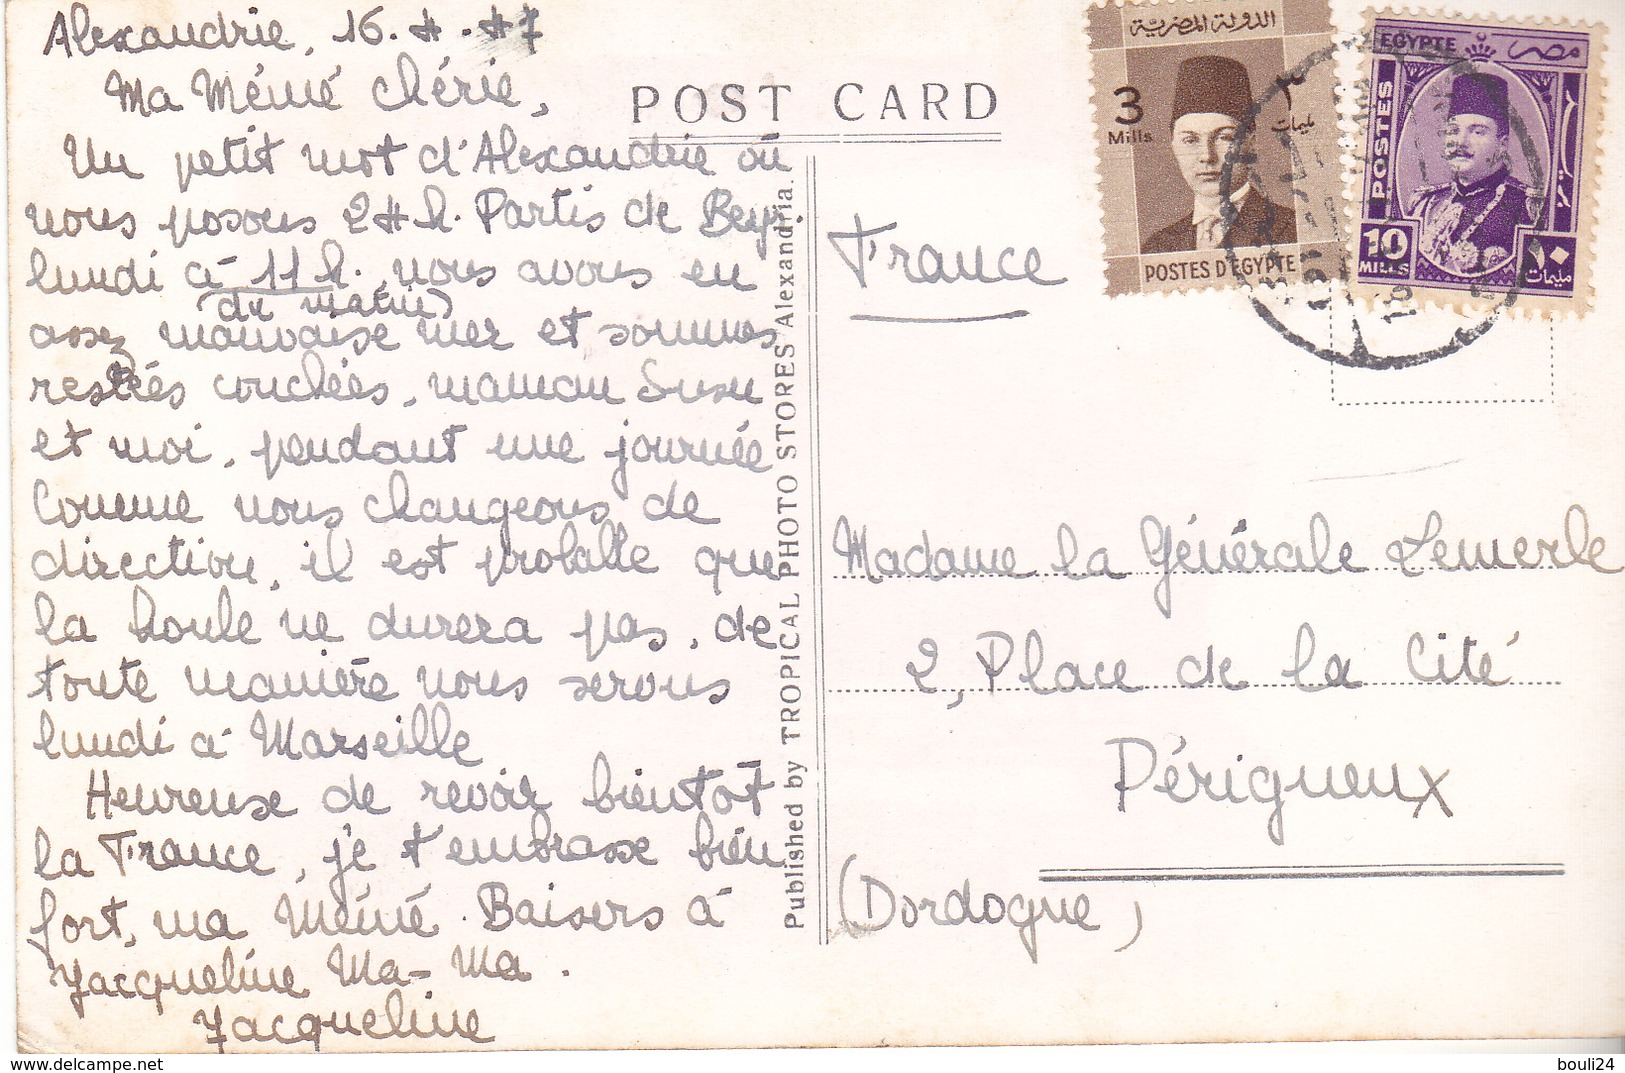 Alexandrie, 16.4.47
Ma Mémé chérie,
Un petit mot d'Alexandrie où
nous posons 24 h. Partis de Bey.
lundi à 11 h. nous avons eu
(du matin)
assez mauvaise mer et sommes
restées couchées, maman Susu
et moi, pendant une journée
Comme nous changeons de
direction, il est probable que
la houle ne durera pas, de
toute manière nous serons
lundi à Marseille
Heureuse de revoir bientôt
la France, je t'embrasse bien
fort, ma Mémé. Baisers à
Jacqueline Ma-Ma.
Jacqueline
POST CARD
Published by TROPICAL PHOTO STORES Alexandria.
الدولة المصرية
3
Mills
٣
مليمات
POSTES D'EGYPTE
EGYPTE
مصر
POSTES
بريد
10
MILLS
١٠
مليمات
France
Madame la Générale Lemerle
2, Place de la Cité
Périgueux
(Dordogne)
bouli24